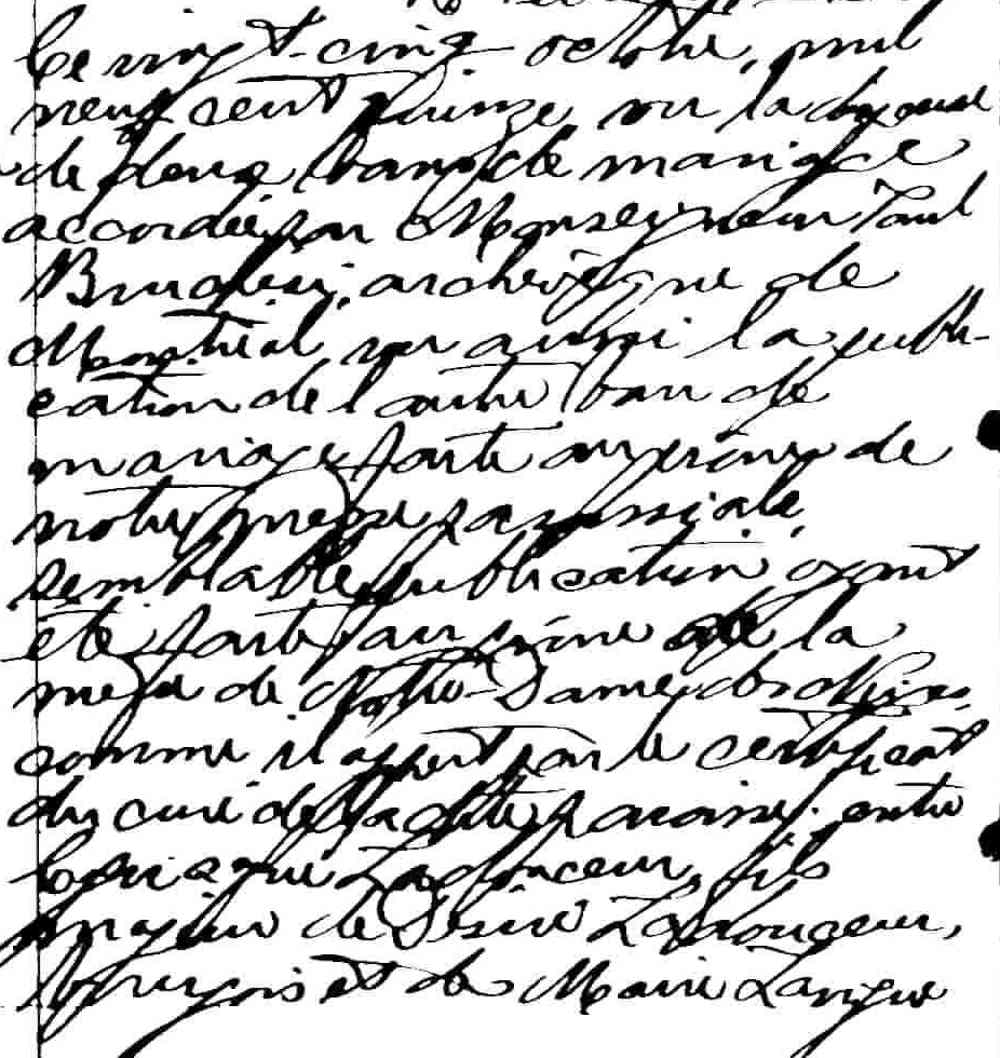 Le vingt-cinq octobre, mil
neuf cent quinze vu la dispense
de deux bans de mariage
accordée par Monseigneur Paul
Bruchési, archevêque de
Montréal vu aussi la publi-
cation de l'autre ban de
mariage faite au prône de
notre messe paroissiale,
semblable publication ayant
été faite au prône de la
messe de Notre-Dame des
comme il appert par le certificat
du curé de la dite paroisse, entre
Ladouceur, fils
majeur de Désiré Ladouceur,
bourgeois et de Marie Lavigne